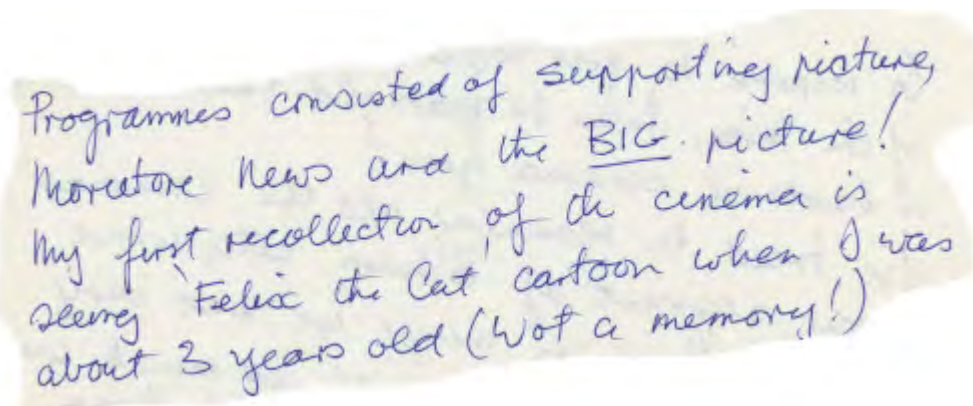 Programmes consisted of supporting picture,
Movietone News and the BIG. picture!
My first recollection of the cinema is
seeing 'Felix the Cat' cartoon when I was
about 3 years old (Wot a memory!)